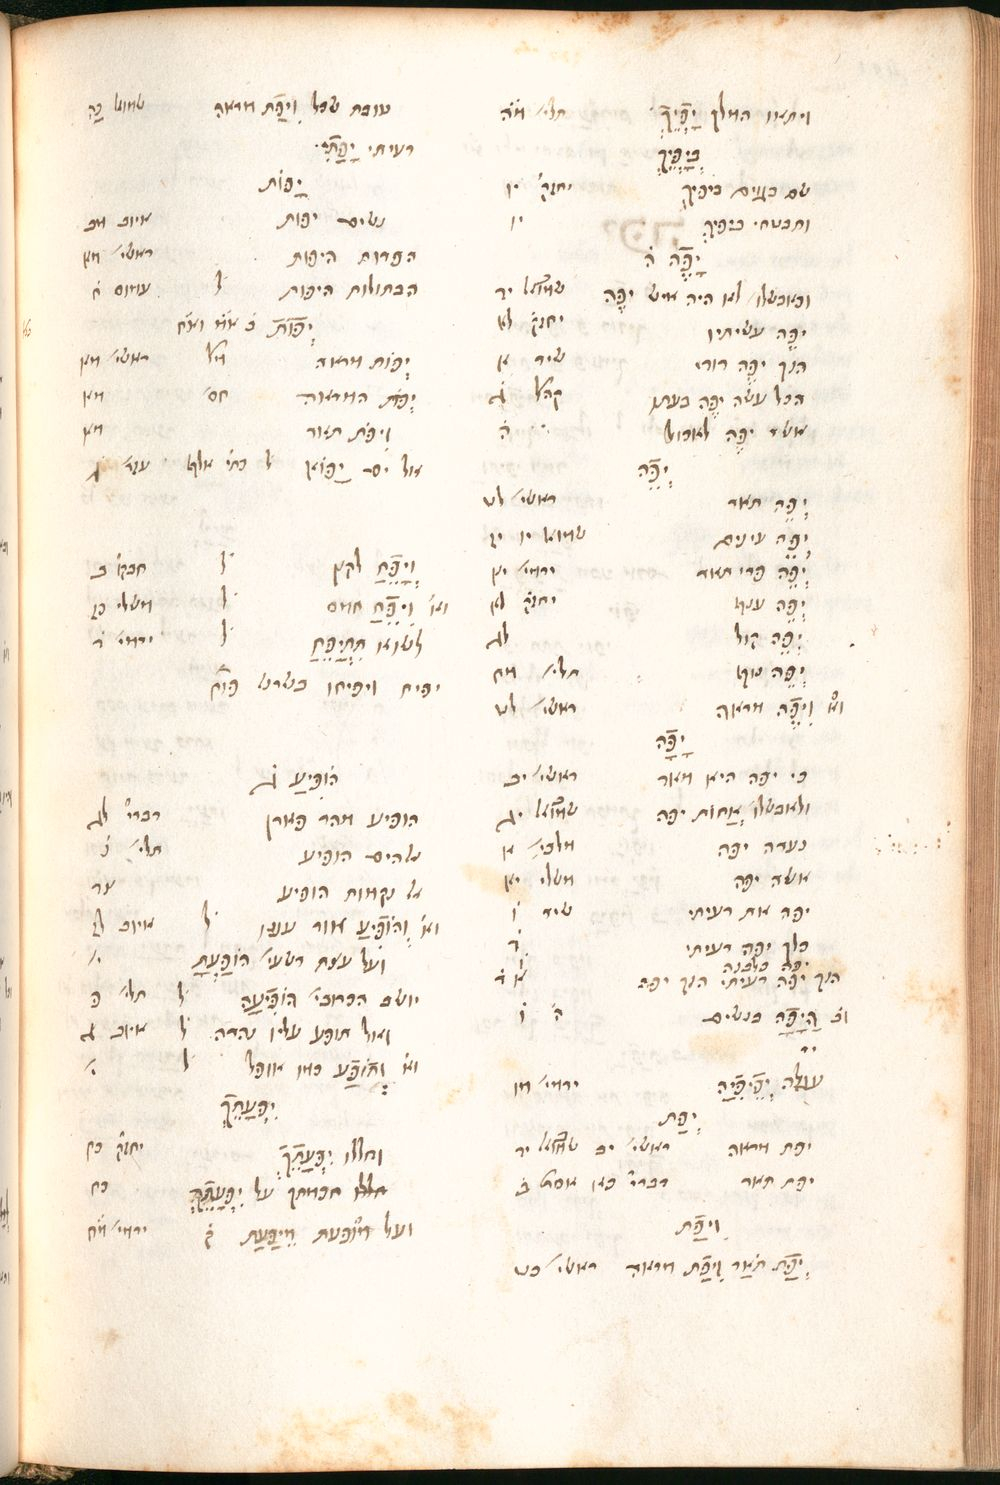 ויתאו המלך יָפְיֵךְ תלי׳ מה
בְּיָפְיֵךְ
שם בגוים ביפיך יחזק׳ יו
ותבטחי ביפיך יו
יָפֶה ה
וכאבשלו׳ לא היה איש יפה שמואל יד
יפה עשיתיו יחזק׳ לא
הנך יפה דודי שיר א
הכל עשה יפה בעתו קהל׳ ג
אשר יפה לאכול ה
יְפֵה
יְפֵה תואר ראשי׳ לט
יְפֵה עינים שמואל יו
יְפֵה פרי תואר ירמי׳ יא
יְפֵה ענף יחזק׳ לא
יְפֵה קול לג
יְפֵה נוף תלי׳ מח
וא׳ וִיפֵה מראה ראשי׳ לט
יָפָה
כי יפה היא מאד ראשי׳ יב
ולאבשלו׳ אחות יפה שמואל יג
נערה יפה מלכי׳ א
אשה יפה משלי יא
יפה את רעיתי שיר ו
כלך יפה רעיתי ד
יפה כלבנה ו
הנך יפה רעיתי הנך יפה א ד
וב הַיָּפָה בנשים ה ו
עגלה יְפֵיפִיָּה ירמי׳ מו
יְפַת
יפת מראה ראשי׳ יב שמואל יד
יפת תאר דברי׳ כא אסתר ב
וִיפַת
יְפַת תֹאַר וִיפַת מראה ראשי׳ כט
טובת שכל וִיפַת תואר שמואל כה
רעיתי יָפָתִי
יָפוֹת
נשים יפות איוב מב
הפרות היפות ראשי׳ מא
הבתולות היפות ל׳ עמוס ח
יְפוֹת
יְפוֹת מראה ראשי׳ מא
יְפֹת המראה חס׳ מא
וִיפֹת תואר מא
אל ים יָפוֹא ל׳ עזר׳ ג
וְיָפֵחַ לקץ ל׳ חבקו׳ ב
וא׳ וִיפֵחַ חמס ל׳ משלי כז
לשוא תִּתְיַפֵּחַ ל׳ ירמי׳ ד
יפיח ויפיחו בשרש פוח
הוֹפִיעַ ג
הופיע מהר פארן דברי׳ לג
אלהים הופיע תלי׳ נ
אל נקמות הופיע צד
וא׳ וְהוֹפִיעַ אור עננו ל׳ איוב לז
ועל עצת רשעי׳ הוֹפַעְתָּ י׳
יושב הכרובי׳ הוֹפִיעָה ל׳ תלי׳ פ
ואל תופע עליו נהרה ל׳ איוב ג
וא׳ וַתֹּפַע כמו אופל ל׳ י׳
יִפְעָתֶךָ
וחללו יִפְעָתֶךָ יחזק׳ כח
חכמתך על יִפְעָתֶךָ כח